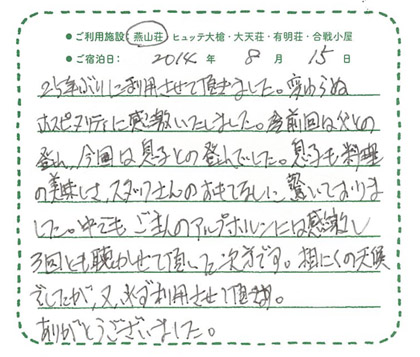 ●ご利用施設 燕山荘 ヒュッテ大槍・大天荘・有明荘・合戦小屋
●ご宿泊日： 2014 年 8 月 15 日
25年ぶりに利用させて頂きました。変わらぬ
ホスピタリティに感激いたしました。前回は父との
登山、今回は息子との登山でした。息子も料理
の美味しさ、スタッフさんのおもてなしに驚いておりま
した。中でもご主人のアルプホルンには感激し
3回とも聴かせて頂いた次第です。相にくの天候
でしたが、又、必ず利用させて頂きます。
ありがとうございました。